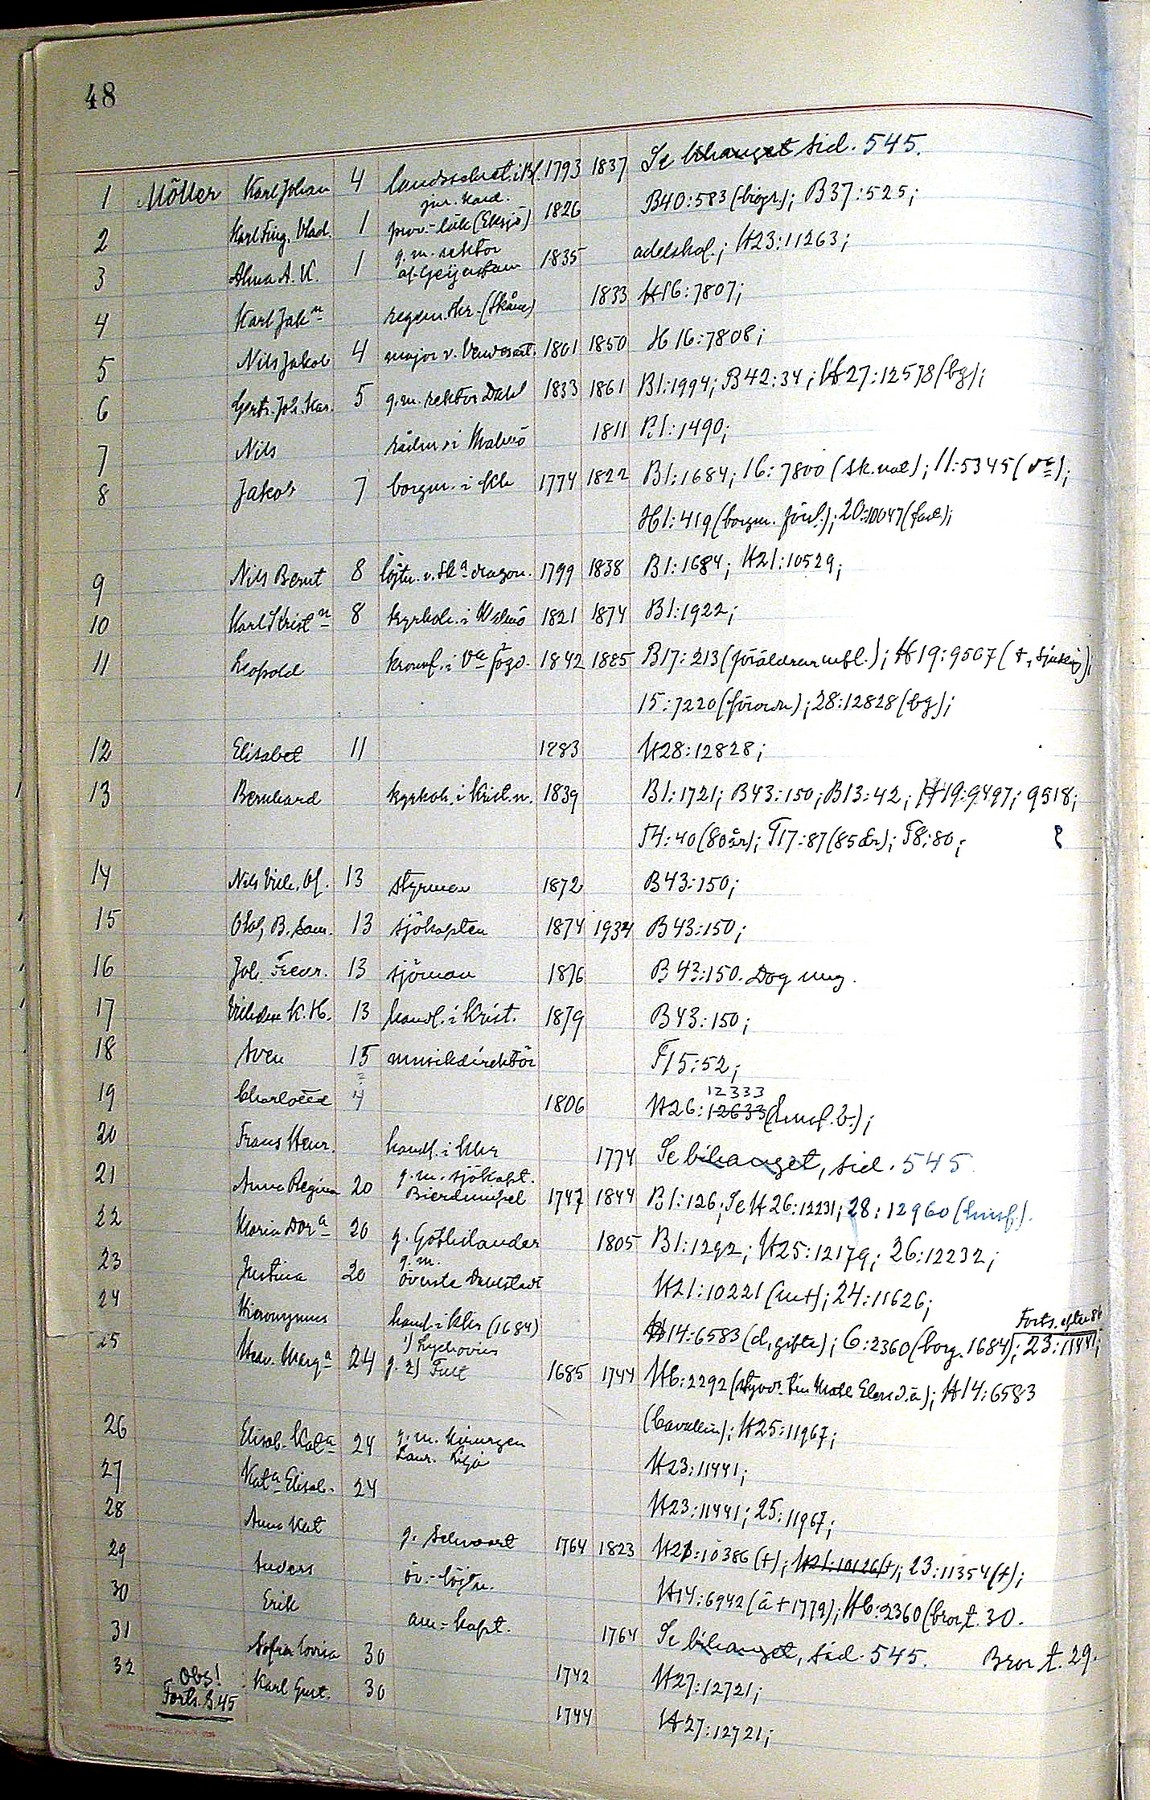 48
1 Möller Karl Johan 4 landssekret. i Bl. 1793 1837 Se bihanget sid. 545.
jur. kand.
2 Karl Ting. Vlad. 1 prov.-läk (Eksjö) 1826 B40:583 (biogr.); B37:525;
g. m. rektor
3 Alma A. K. 1 af Geijerstam 1835 adelskal.; H23:11263;
4 Karl Jak n regem.skr. (Skåne) 1833 H16:7807;
5 Nils Jakob 4 major v. Vendesart. 1801 1850 H 16:7808;
6 Gert. Joh. Kar. 5 g. m. rektor Dahl 1833 1861 B1:1994; B42:34; H27:12578 (bg);
7 Nils rådm i Malmö 1811 B1:1490;
8 Jakob 7 borgm. i Khr 1774 1822 B1:1684; 16:7800 (sk. nat); 11:5345
H1:419 (borgm. försl.); 20:10047
9 Nils Bernt 8 löjtn. v. Sk a dragon. 1799 1838 B1:1684; H21:10529;
10 Karl Krist n 8 kyrkoh. i Malmö 1821 1874 B1:1922;
11 Leopold kronof. i V a fögd. 1842 1885 B17:213 (föräldrar ); H19:9507 (†,
15:7220 ; 28:12828 (bg);
12 Elisabet 11 1883 H28:12828;
13 Bernhard kyrkoh. i Krist.n. 1839 B1:1721; B43:150; B13:42; H19:9497; 9518;
T4:40 (80 år); T17:87 (85 år); T8:80;
14 Nils Vilh. Ol. 13 styrman 1872 B43:150;
15 Olof B. Sam. 13 sjökapten 1874 1934 B43:150;
16 Joh. Fredr. 13 sjöman 1876 B43:150. Dog ung.
17 Vilhelm K. H. 13 handl. i Krist. 1879 B43:150;
18 Sven 15 musikdirektör T15:52;
12333
19 Charlotta 4 1806 H26:12633
20 Frans Henr. handl. i Khr 1774 Se bihanget, sid. 545
g. m. sjökapt.
21 Anna Regina 20 Bierdumpfel 1747 1844 B1:126; Se H26:12231; 28:12960
22 Maria Dor a 20 g. Göthilander 1805 B1:1292; H25:12179; 26:12232;
g. m.
23 Justina 20 överste Dahlstedt H21:10221 ; 24:11626;
Forts. efter 86
24 Hieronymus handl. i Khr (1684) H14:6583 (d, gifte); 6:2360 (borg. 1684); 23:11441;
1) Lychovius
25 Hedv. Marg a 24 g. 2) Fult 1685 1744 H6:2292 ; H14:6583
(Cavallin); H25:11967;
26 Elisab. Kat a 24 g. m. kirurgen
Laur. H23:11441;
27 Kat a Elisab. 24 H23:11441; 25:11967;
28 Anna Kat g. Schwartz 1764 1823 H21:10386 (†); H21:10126 (†); 23:11354 (†);
29 Anders öv.-löjtn. H14:6942 (å † 1779); H6:2360 (bror t. 30.
30 Erik am:kapt. 1764 Se bihanget, sid. 545. Bror t. 29.
31 Sofia Lovisa 30 1742 H27:12721;
32 Karl Gust. 30 1744 H27:12721;
Obs!
Forts. S. 45